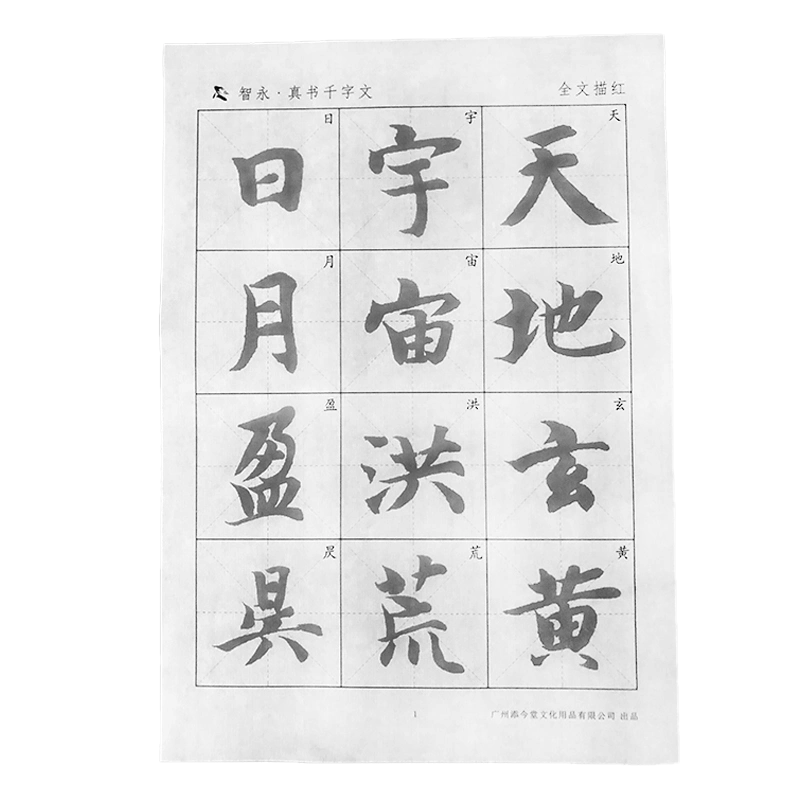 智永·真书千字文
全文描红
天地玄黄
天地玄黄
宇宙洪荒
宇宙洪荒
日月盈昃
日月盈昃
1
广州添今堂文化用品有限公司 出品